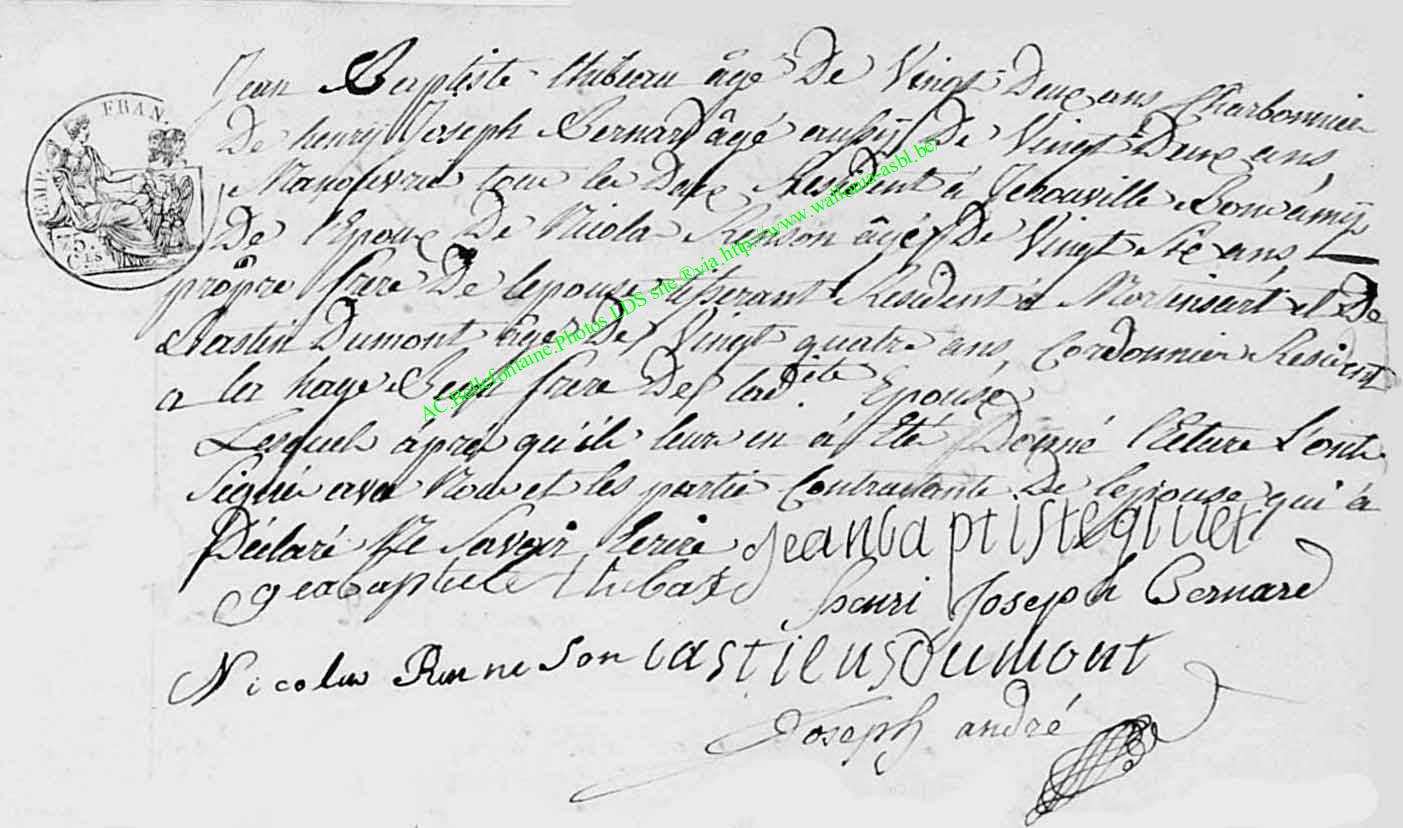 Jean Baptiste thibeau âgé De Vingt Deux ans Charbonnier
De henry Joseph Bernard âgé aussy De Vingt Deux ans
Manoeuvre tous les Deux Resident à Jehouville Bon amy
De l'Epoux De Nicola Renson âgés De Vingt Sê ans
propre frere De lepouse Resident à Norinsart et De
Bastin Dumont âgé De Vingt quatre ans Cordonnier Resident
a la haye frere De lad.ite Epouse
Lesquels âprés qu'ils leur en á Eté Donné lecture l'ont
Signé avec Nous et les partie Contractante De lepouse qui à
Déclaré Ne Savoir Ecrire jean baptiste gillet
geabaptiste thibaut henri Joseph Bernard
Nicolas Renneson bastien Dumont
Joseph andré
FRAN.
75
C.ES
AC Bellefontaine.Photos LDS site ® via http://www.wallonia-asbl.be